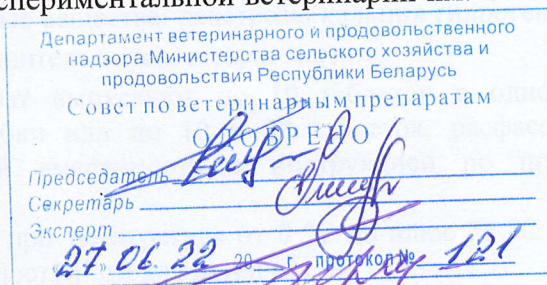 экспериментальной ветеринарии им.
Департамент ветеринарного и продовольственного
надзора Министерства сельского хозяйства и
продовольствия Республики Беларусь
Совет по ветеринарным препаратам
ОДОБРЕНО
Председатель
Секретарь
Эксперт
27» 06. 22 20 г. протокол № 121